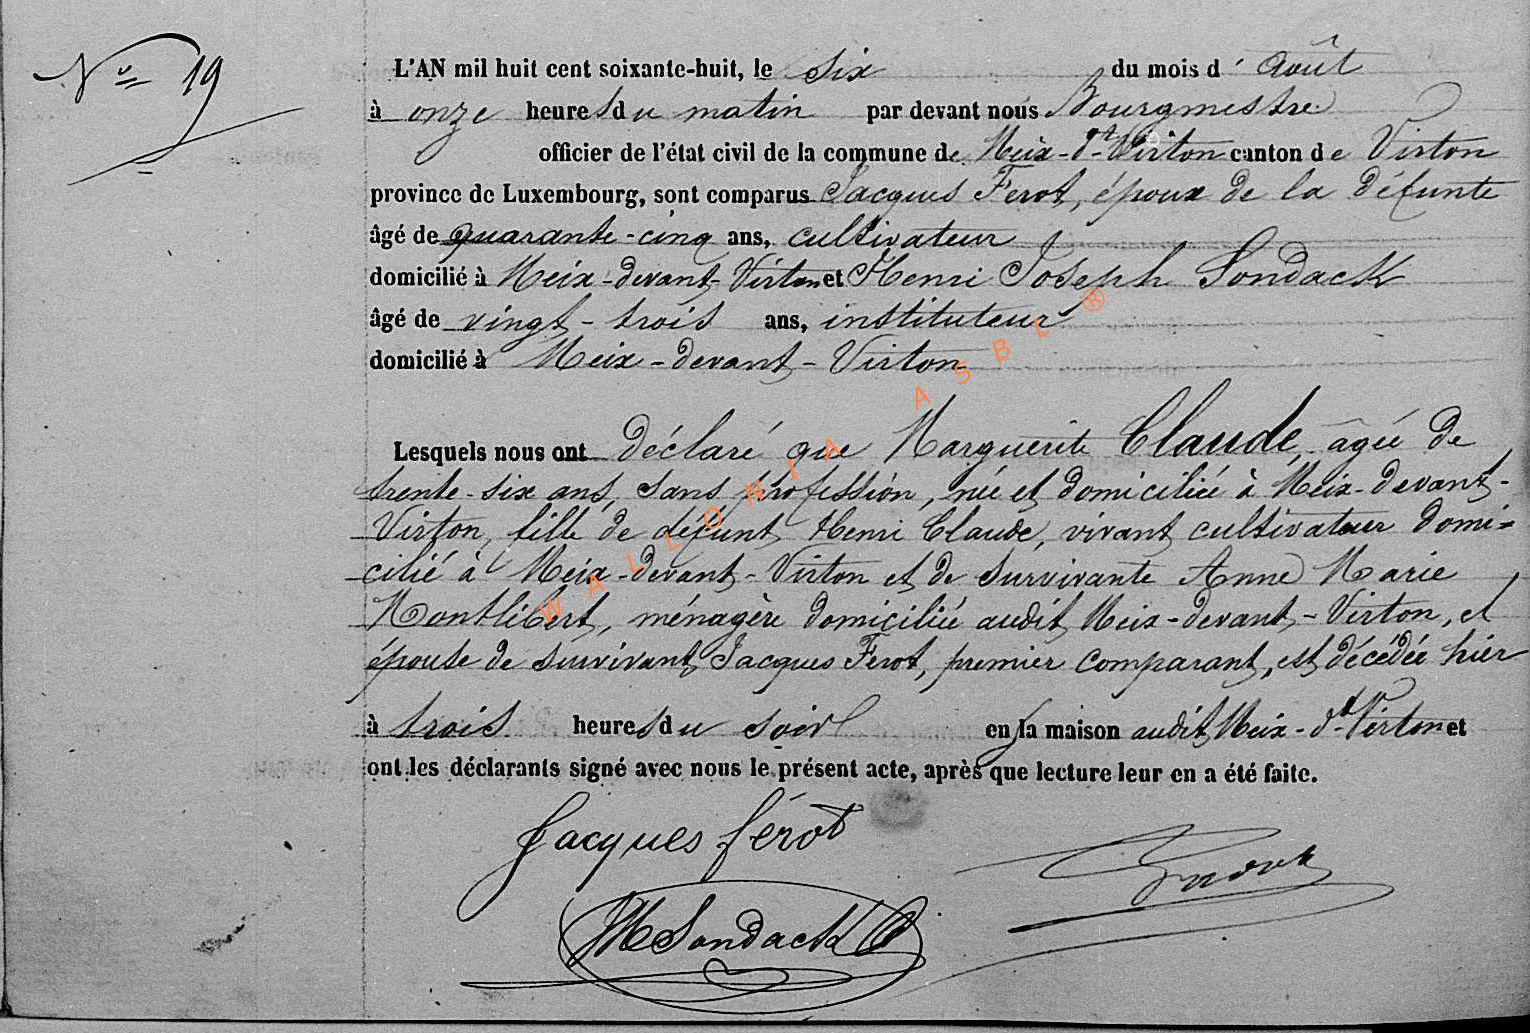 No 19
L'AN mil huit cent soixante-huit, le six du mois d'août
à onze heures du matin par devant nous Bourgmestre
officier de l'état civil de la commune de Meix-dt-Virton canton de Virton
province de Luxembourg, sont comparus Jacques Ferot, époux de la défunte
âgé de quarante-cinq ans, cultivateur
domicilié à Meix-devant-Virton et Henri Joseph Sondack
âgé de vingt-trois ans, instituteur
domicilié à Meix-devant-Virton
Lesquels nous ont déclaré que Marguerite Claude, âgée de
trente-six ans, sans profession, née et domiciliée à Meix-devant-
Virton, fille de défunt Henri Claude, vivant cultivateur domi-
cilié à Meix-devant-Virton et de survivante Anne Marie
Montlibert, ménagère domiciliée audit Meix-devant-Virton, et
épouse de survivant Jacques Ferot, premier comparant, est décédée hier
à trois heures du soir en sa maison audit Meix-dt-Virton et
ont les déclarants signé avec nous le présent acte, après que lecture leur en a été faite.
Jacques férot
HSondack
WALLONIA ASBL ®